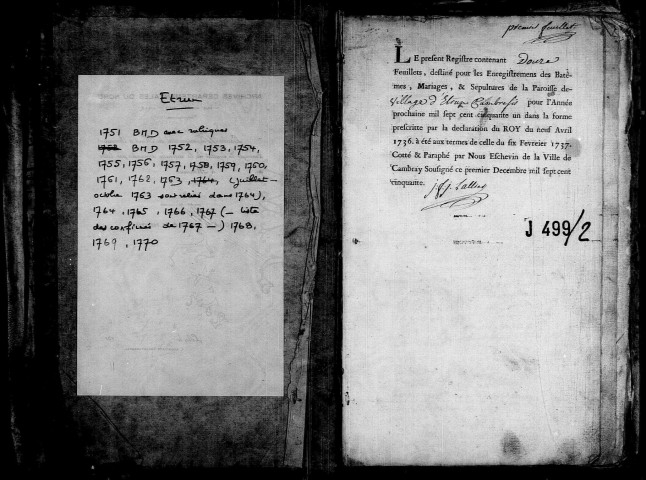 Etrun
1751 BMD avec reliquat
1752 BMD 1752, 1753, 1754,
1755, 1756, 1757, 1758, 1759, 1760,
1761, 1762, 1763 1764 (juillet-
octobre 1763 sont reliés dans 1764),
1764, 1765, 1766, 1767 (– liste
des confirmés de 1767 –) 1768,
1769, 1770
premier feuillet
LE present Registre contenant Douze
Feuillets, destiné pour les Enregistremens des Batê-
mes, Mariages, & Sepultures de la Paroisse de
Village d'Etrun Cambresis pour l'Année
prochaine mil sept cent cinquante un dans la forme
prescritte par la declaration du ROY du neuf Avril
1736. à été aux termes de celle du six Fevreier 1737.
Cotté & Paraphé par Nous Eschevin de la Ville de
Cambray Sousigné ce premier Decembre mil sept cent
cinquante.
J 499/2